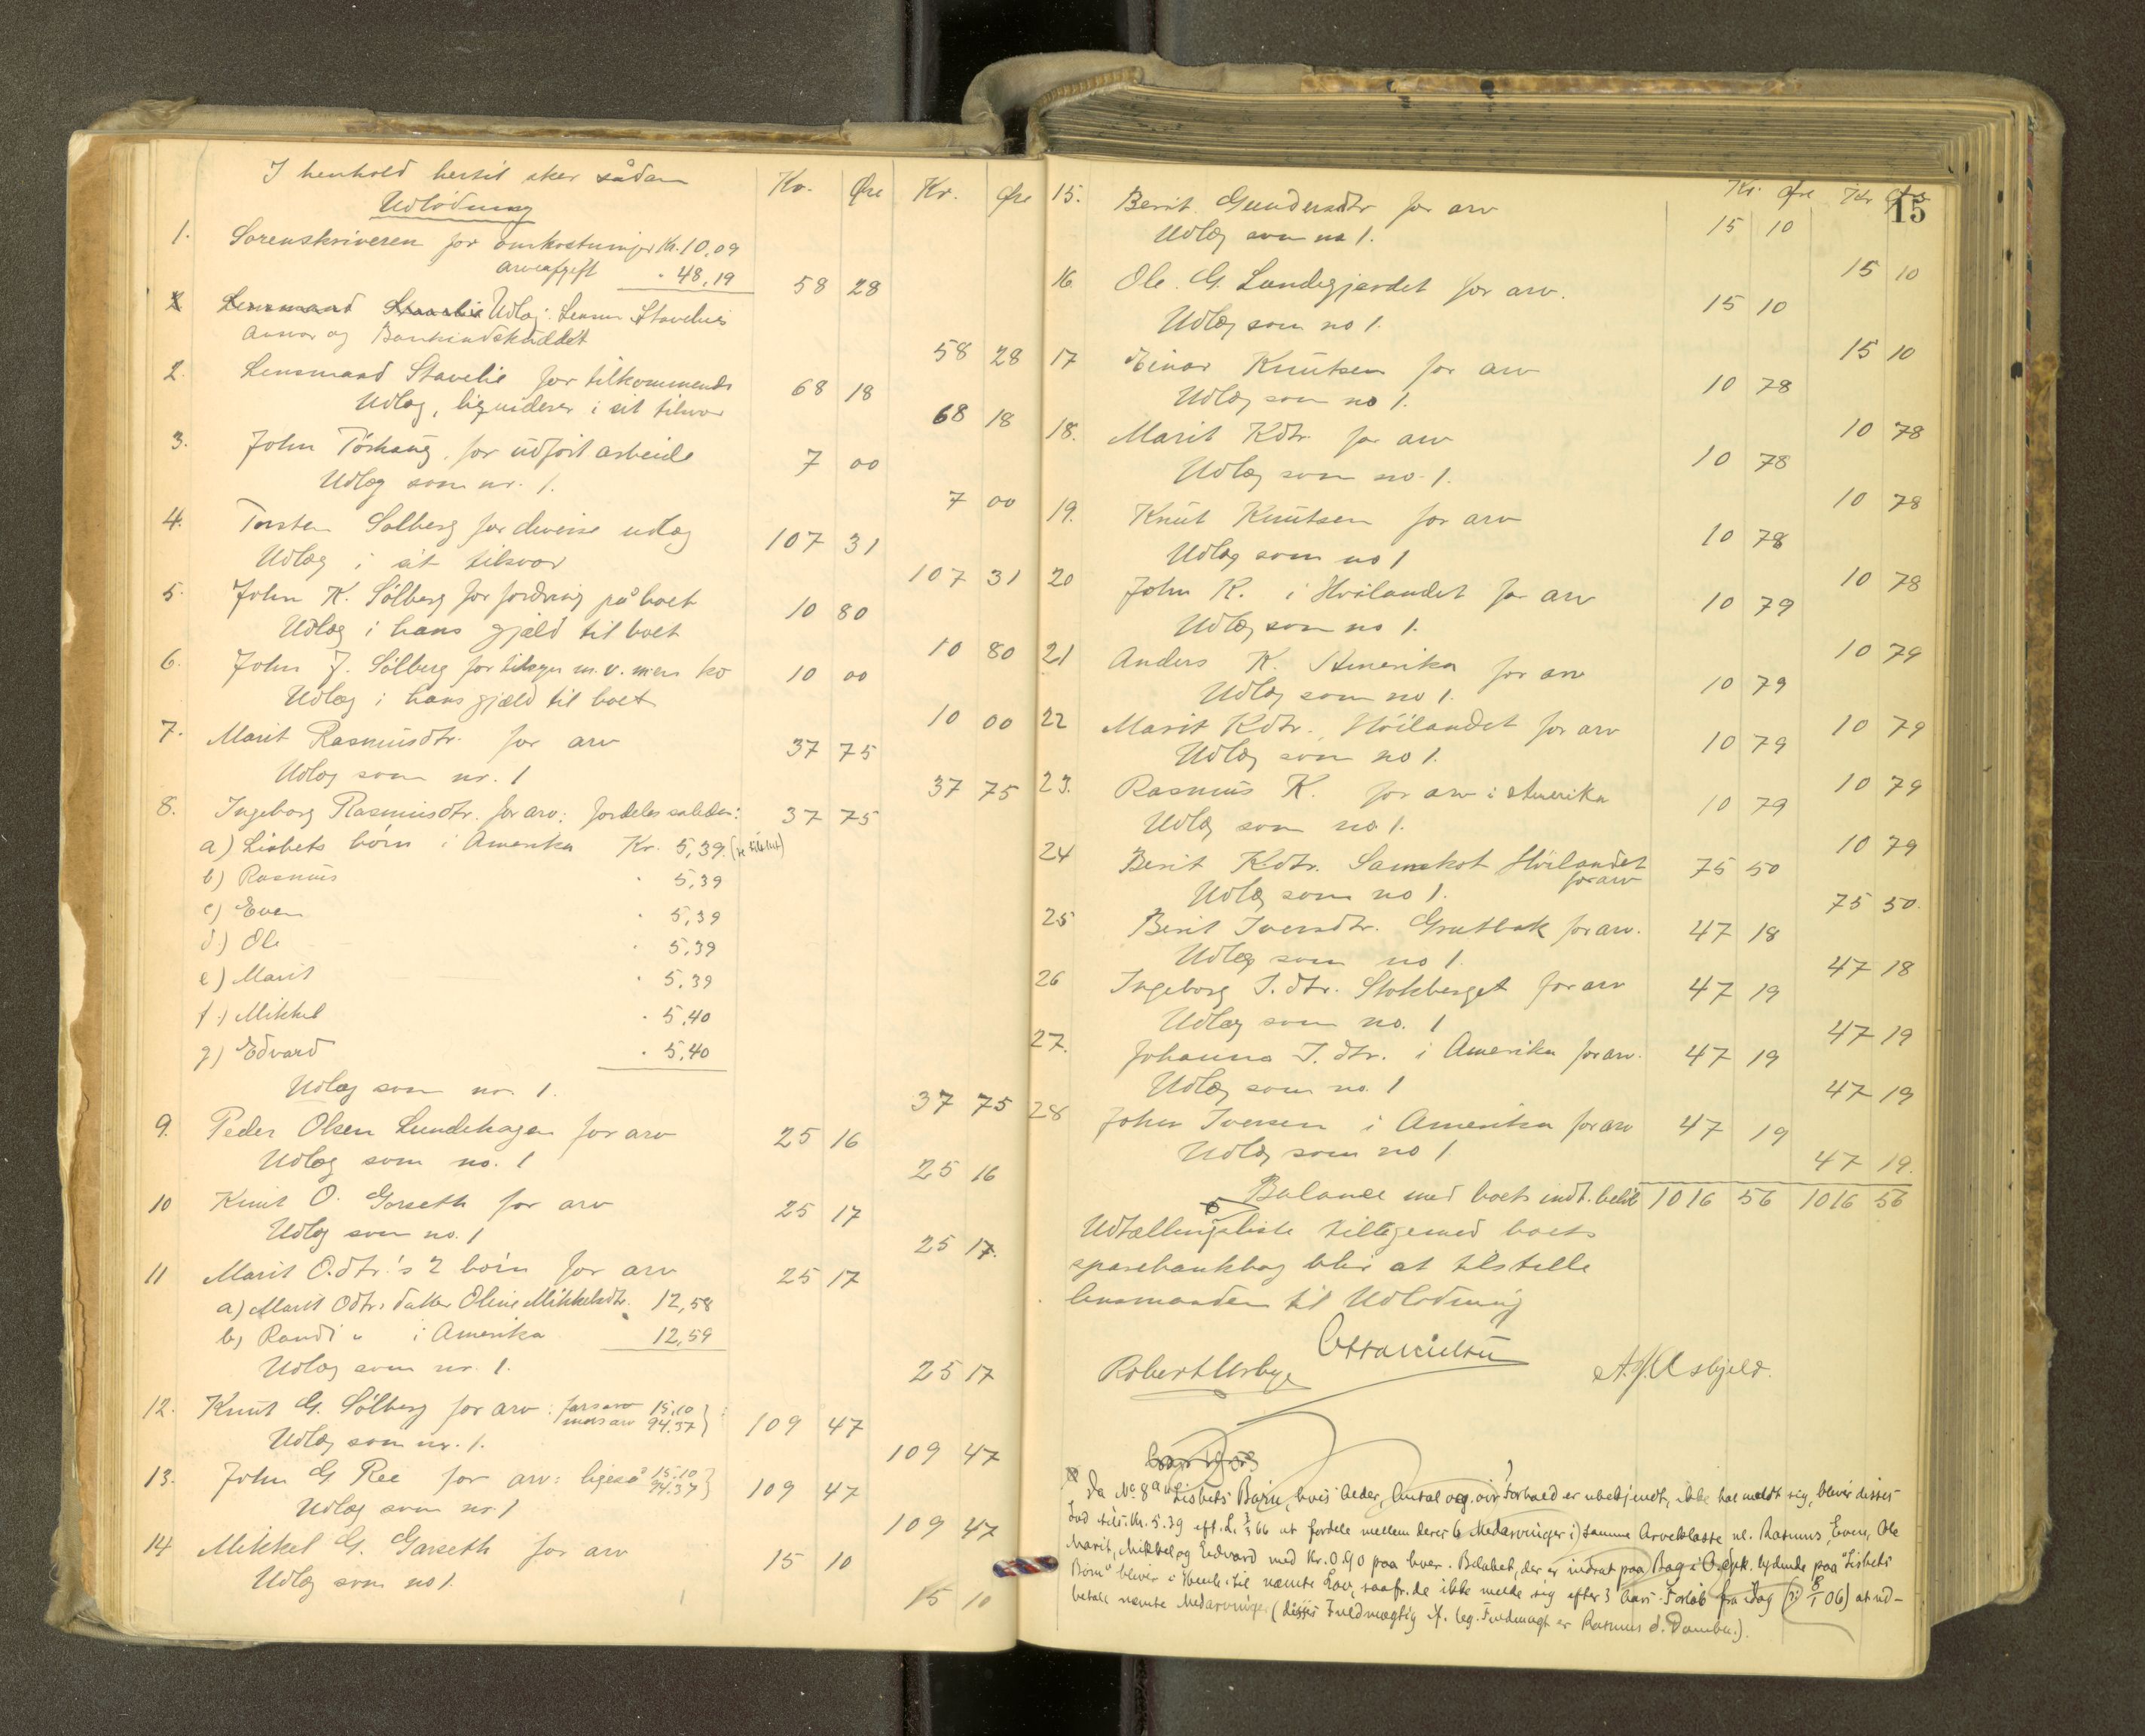 I henhold hertil sker sådan
Udlodning
Kr. Øre Kr. Øre
1. Sorenskriveren for omkostninger Kr. 10,09
arveafgift " 48,19 58 28
Udlæg: Lensm Stavelies
ansvar og Bankindskuddet 58 28
2. Lensmand Stavelie for tilkommende 68 18
Udlæg, liquiderer i sit tilsvar 68 18
3. John Törhaug, for udført arbeide 7 00
Udlæg som nr. 1. 7 00
4. Torsten Solberg for diverse udlæg 107 31
Udlæg i sit tilsvar 107 31
5. John K. Sólberg for fordring på boet 10 80
Udlæg i hans gjæld til boet 10 80
6. John J. Sólberg for tilsyn m.v. men ko 10 00
Udlæg i hans gjæld til boet 10 00
7. Marit Rasmusdtr. for arv 37 75
Udlæg som nr. 1 37 75
8. Ingeborg Rasmusdtr. for arv: fordeles saledes: 37 75
a) Lisbets börn i Amerika Kr. 5,39.
b) Rasmus " 5,39
c) Even " 5,39
d) Ole " 5,39
e) Marit " 5,39
f.) Mikkel " 5,40
g) Edvard " 5,40
Udlæg som nr. 1. 37 75
9. Peder Olsen Lundehagen for arv 25 16
Udlæg som no. 1 25 16
10 Knut O. Garseth for arv 25 17
Udlæg som no. 1 25 17.
11 Marit O.dtr.'s 2 börn for arv 25 17
a) Marit Odtrs datter Oline Mikkelsdtr. 12,58
b) Randi " i Amerika 12,59
Udlæg som nr. 1. 25 17
12. Knut G. Sólberg for arv: farsarv 15.10
morsarv 94.37 109 47
Udlæg som nr. 1. 109 47
13. John G Ree for arv: ligeså 15.10
94.37 109 47
Udlæg som nr 1 109 47
14 Mikkel G. Garseth for arv 15 10
Udlæg som no 1. 15 10
15
Kr. Øre Kr Øre
15. Berit Gundersdtr for arv 15 10
Udlæg som no 1. 15 10
16 Ole G. Lundegjerdet for arv. 15 10
Udlæg som no 1. 15 10
17 Einar Knutsen for arv 10 78
Udlæg som no 1. 10 78
18. Marit Kdtr. for arv 10 78
Udlæg som no. 1. 10 78
19. Knut Knutsen for arv 10 78
Udlæg som no 1 10 78
20 John K. i Höilandet for arv 10 79
Udlæg som no 1. 10 79
21 Anders K. Amerika for arv 10 79
Udlæg som no 1. 10 79
22 Marit Kdtr., Höilandet for arv 10 79
Udlæg som no 1. 10 79
23. Rasmus K. for arv i Amerika 10 79
Udlæg som no 1. 10 79
24 Berit Kdtr. Höilandet
for arv 75 50
Udlæg som no 1. 75 50.
25 Berit Iversdtr. for arv. 47 18
Udlæg som no 1. 47 18
26 Ingeborg I.dtr. Stokberget for arv 47 19
Udlæg som no. 1 47 19
27. Johanna I.dtr. i Amerika for arv. 47 19
Udlæg som no. 1 47 19
28 John Iversen i Amerika for arv 47 19
Udlæg som no 1 47 19.
Balance med boets indt. beløb 1016 56 1016 56
Udtællingsliste tilligemed boets
sparebankbog blir at tilstille
lensmanden til Udlodning
Robert Urbye A. J. Asbjeld.
Da No. 8 a Lisbets Børn, hvis Alder, Antal og Forhold er ubekjendt, ikke har meldt sig, bliver disses
Lod stor Kr. 5.39 eft. L. 3/3 66 at fordele mellem deres 6 Medarvinger i samme Arveklasse nl. Rasmus, Even, Ole
Marit, Mikkel og Edvard med Kr. 0.90 paa hver. Beløbet, der er indsat paa Bog i lydende paa "Lisbets
Børn" bliver i Henh. til nævnte Lov, saafr. de ikke melde sig efter 3 Aars Forløb fra idag (8/1 06) at ud-
betale nævnte Medarvinger (disses Fuldmægtig if. leg. Fuldmagt er Rasmus